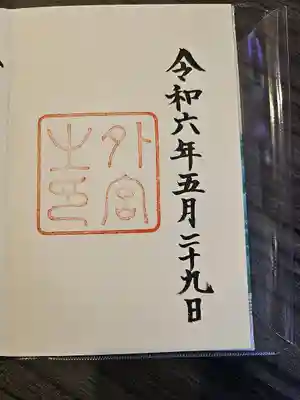 令和六年五月二十九日
外宮
之印